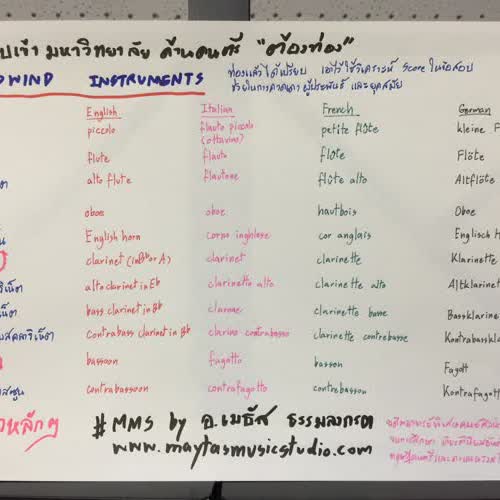 บเข้า มหาวิทยาลัย ด้านดนตรี "ต้องท่อง"
DWIND INSTRUMENTS ท่องแล้วได้เปรียบ เอาไว้ใช้วิเคราะห์ Score ในข้อสอบ
ช่วยในการคาดเดา ผู้ประพันธ์ และยุคสมัย
English Italian French German
piccolo flauto piccolo petite flûte kleine F
(ottavino)
flute flauto flûte Flöte
alto flute flautone flûte alto Altflöte
oboe oboe hautbois Oboe
English horn corno inghlese cor anglais Englisch H
clarinet (inBb or A) clarinet clarinette Klarinette
alto clarinet in Eb clarinetto alto clarinette alto Altklarinet
bass clarinet in Bb clarone clarinette basse Bassklarine
contrabass clarinet in Bb clarino contrabasso clarinette contrebasse Kontrabasskla
bassoon fagotto basson Fagott
contrabassoon contrafagotto contrebasson Kontrafagott
หลักๆ #MMS by อ.เมธัส ธรรมลงกรต
www.maytasmusicstudio.com